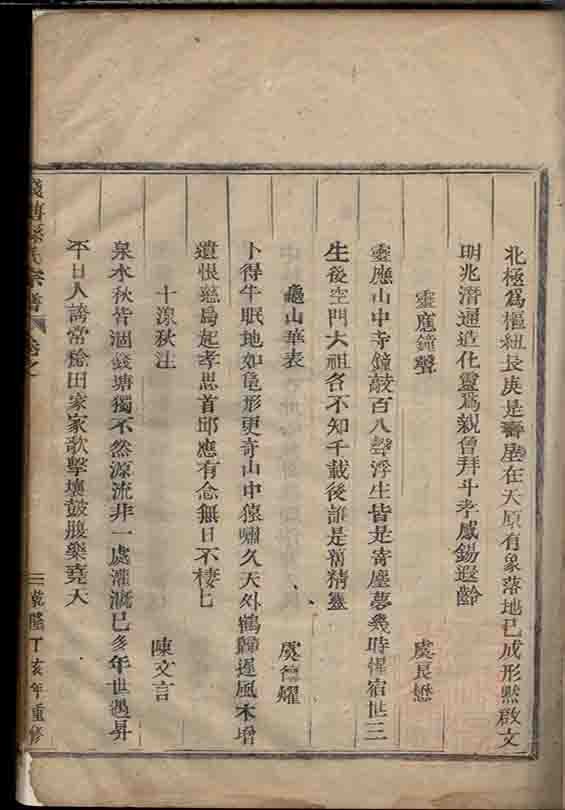 北極爲樞紐長庚是壽星在天原有象落地已成形黙啟文
明兆潛通造化靈爲親曾拜斗孝感錫遐齡
靈應鐘聲 虞長懋
靈應山中寺鐘鼓百八聲浮生皆是寄塵夢幾時惺宿世三
生後空門大祖名不知千載後誰是舊精靈
龜山華表 虞德耀
卜得牛眠地如龜形更奇山中猿嘯久天外鶴歸遲風木增
遺恨慈烏起孝思首邱應有念無日不棲七
十源秋注 陳文言
泉水秋皆涸錢塘獨不然源流非一處灌漑已多年世遇昇
平日人誇常稔田家家歌擊壤鼓腹樂堯天
錢塘孫氏宗譜 卷之
三 乾隆丁亥年重修